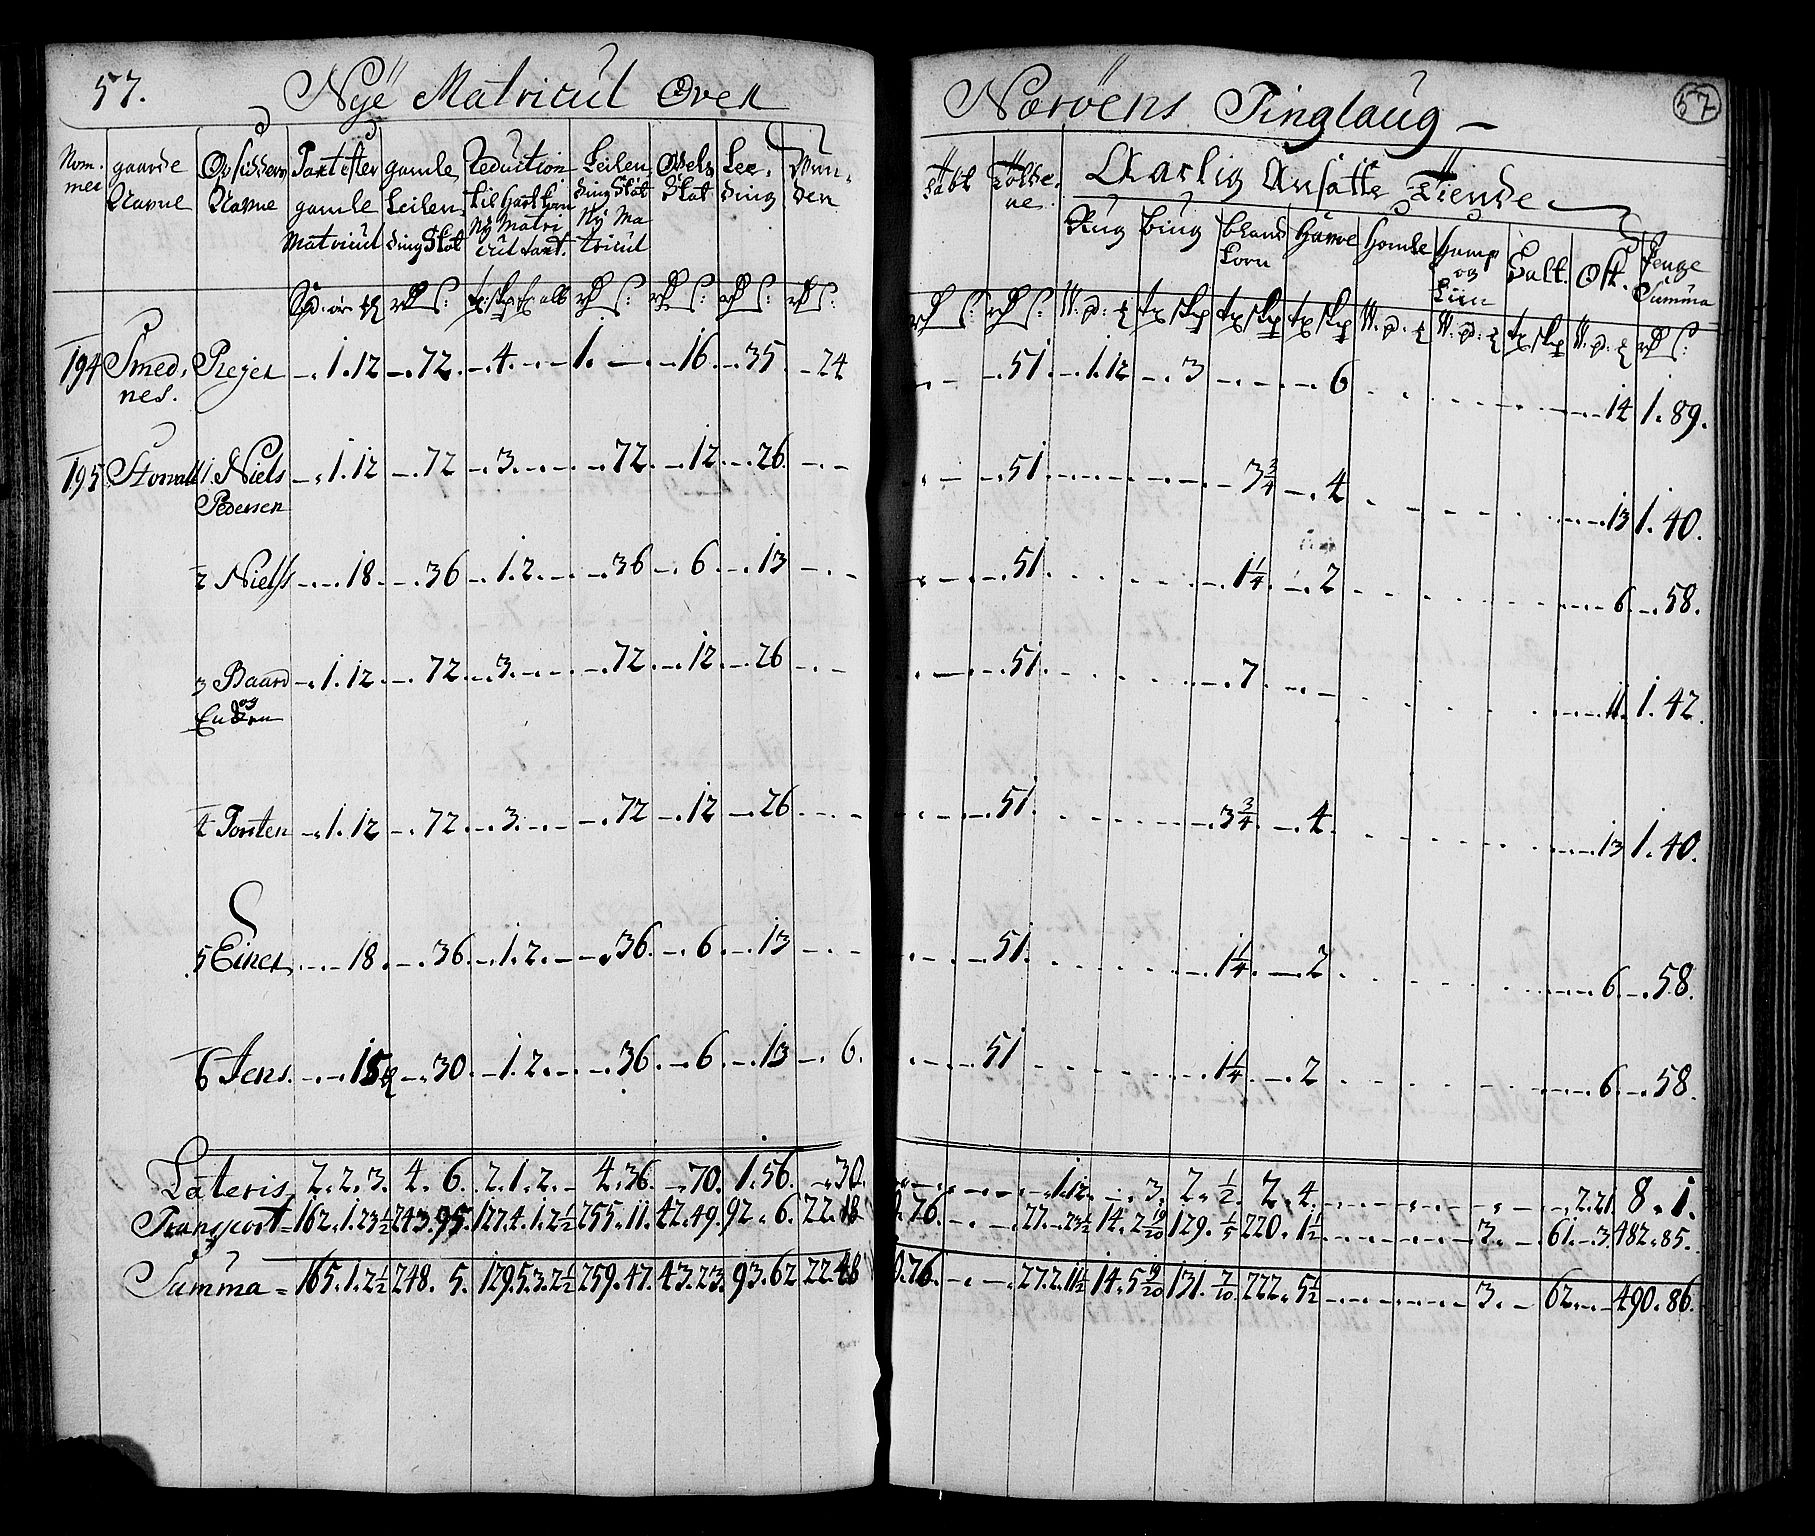 57. Nÿe Matricul Over Nærøens Tinglaug – 57
Nommer gaarde Navne Opsidderns Navne Taxt efter gamle Matricul gamle Leilending Skat Reduction til Hart Korn Ny Matricul taxt. Leilending Skat Ny Matricul Odels Skat Leeding Skatt Aarlig Ansatte Tiende
Rug Biug bland Korn Havre Homle Hamp og Liin Salt. Ost. Penge Summa
194 Smednes. Rejer 1.12 72. 4. 1. 16. 35. 24 51. 1.12 3 6 14 1.89.
195 Storvall 1. Niels Pedersen 1.12 72 3. 72. 12. 26. 51. 3 3/4 4 13 1.40.
2 Niels 18. 36 1.2. 36 6. 13 51. 1 1/4 2 6. 58.
3 Baard og 1.12. 72. 3. 72. 12. 26 51. 7. 11. 1.42.
4 Torsten 1.12 72. 3. 72 12 26 51. 3 3/4 4. 13 1.40.
5 Einer 18. 36. 1.2. 36. 6. 13 51. 1 1/4 2 6. 58.
6 Jens. 15 30. 1.2. 36. 6. 13 6. 51 1 1/4 2 6. 58.
Lateris 2.2.3. 4. 6. 2.1.2. 4.36. 70. 1.56. 30. 1.12. 3. 2. 1/2. 2.4. 2.21. 8.1.
Transport 162.1.23 1/2 243.95. 127.4.1.2 1/2 255.11. 42.49. 92.6. 22.18 76. 27. 23 1/2 14.2 19/20 129. 1/5 220.1 1/2 3. 61. 3. 482.85.
Summa = 165.1.2 1/2 248. 5. 129.5.3.2 1/2 259.47. 43.23. 93.62 22.48 76. 27.2.11 1/2 14.5 19/20 131. 7/10. 222.5 1/2 3. 62. 490.86.